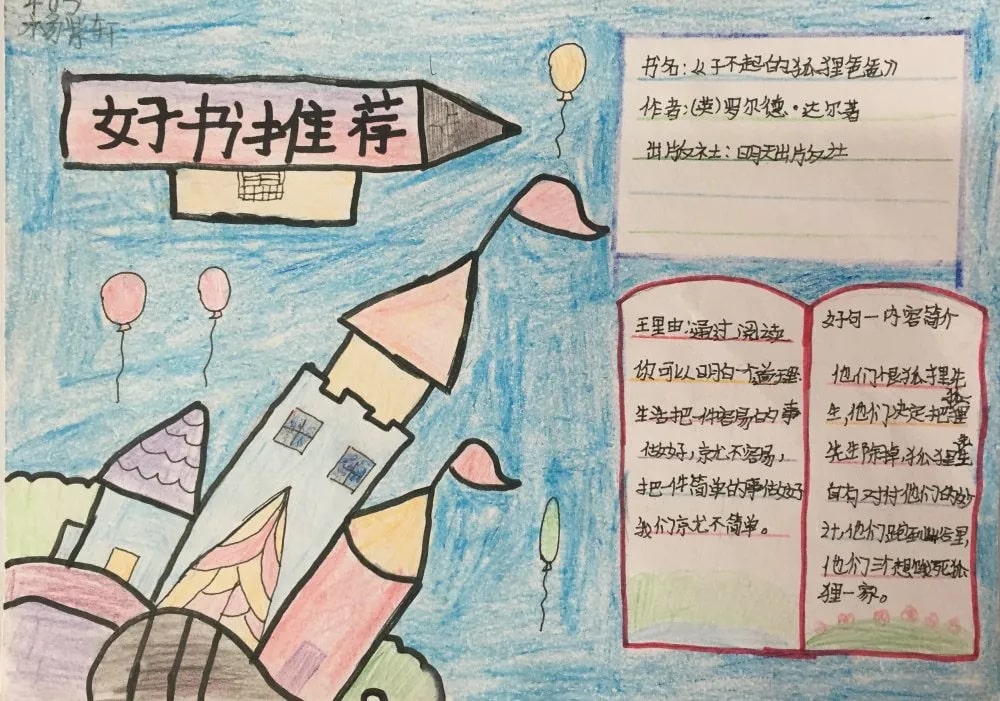 好书推荐
书名:《了不起的狐狸爸爸》
作者:(英)罗尔德·达尔著
出版社:明天出版社
理由:通过阅读
你可以明白一个道理:
生活把一件容易的事
做好,就不容易,
把一件简单的事做好
我们就不简单。
好句一内容简介
他们恨狐狸先
生,他们决定把狐狸
先生除掉,狐狸先生
自有对付他们的妙
计,他们跑到山谷里,
他们三个想饿死狐
狸一家。